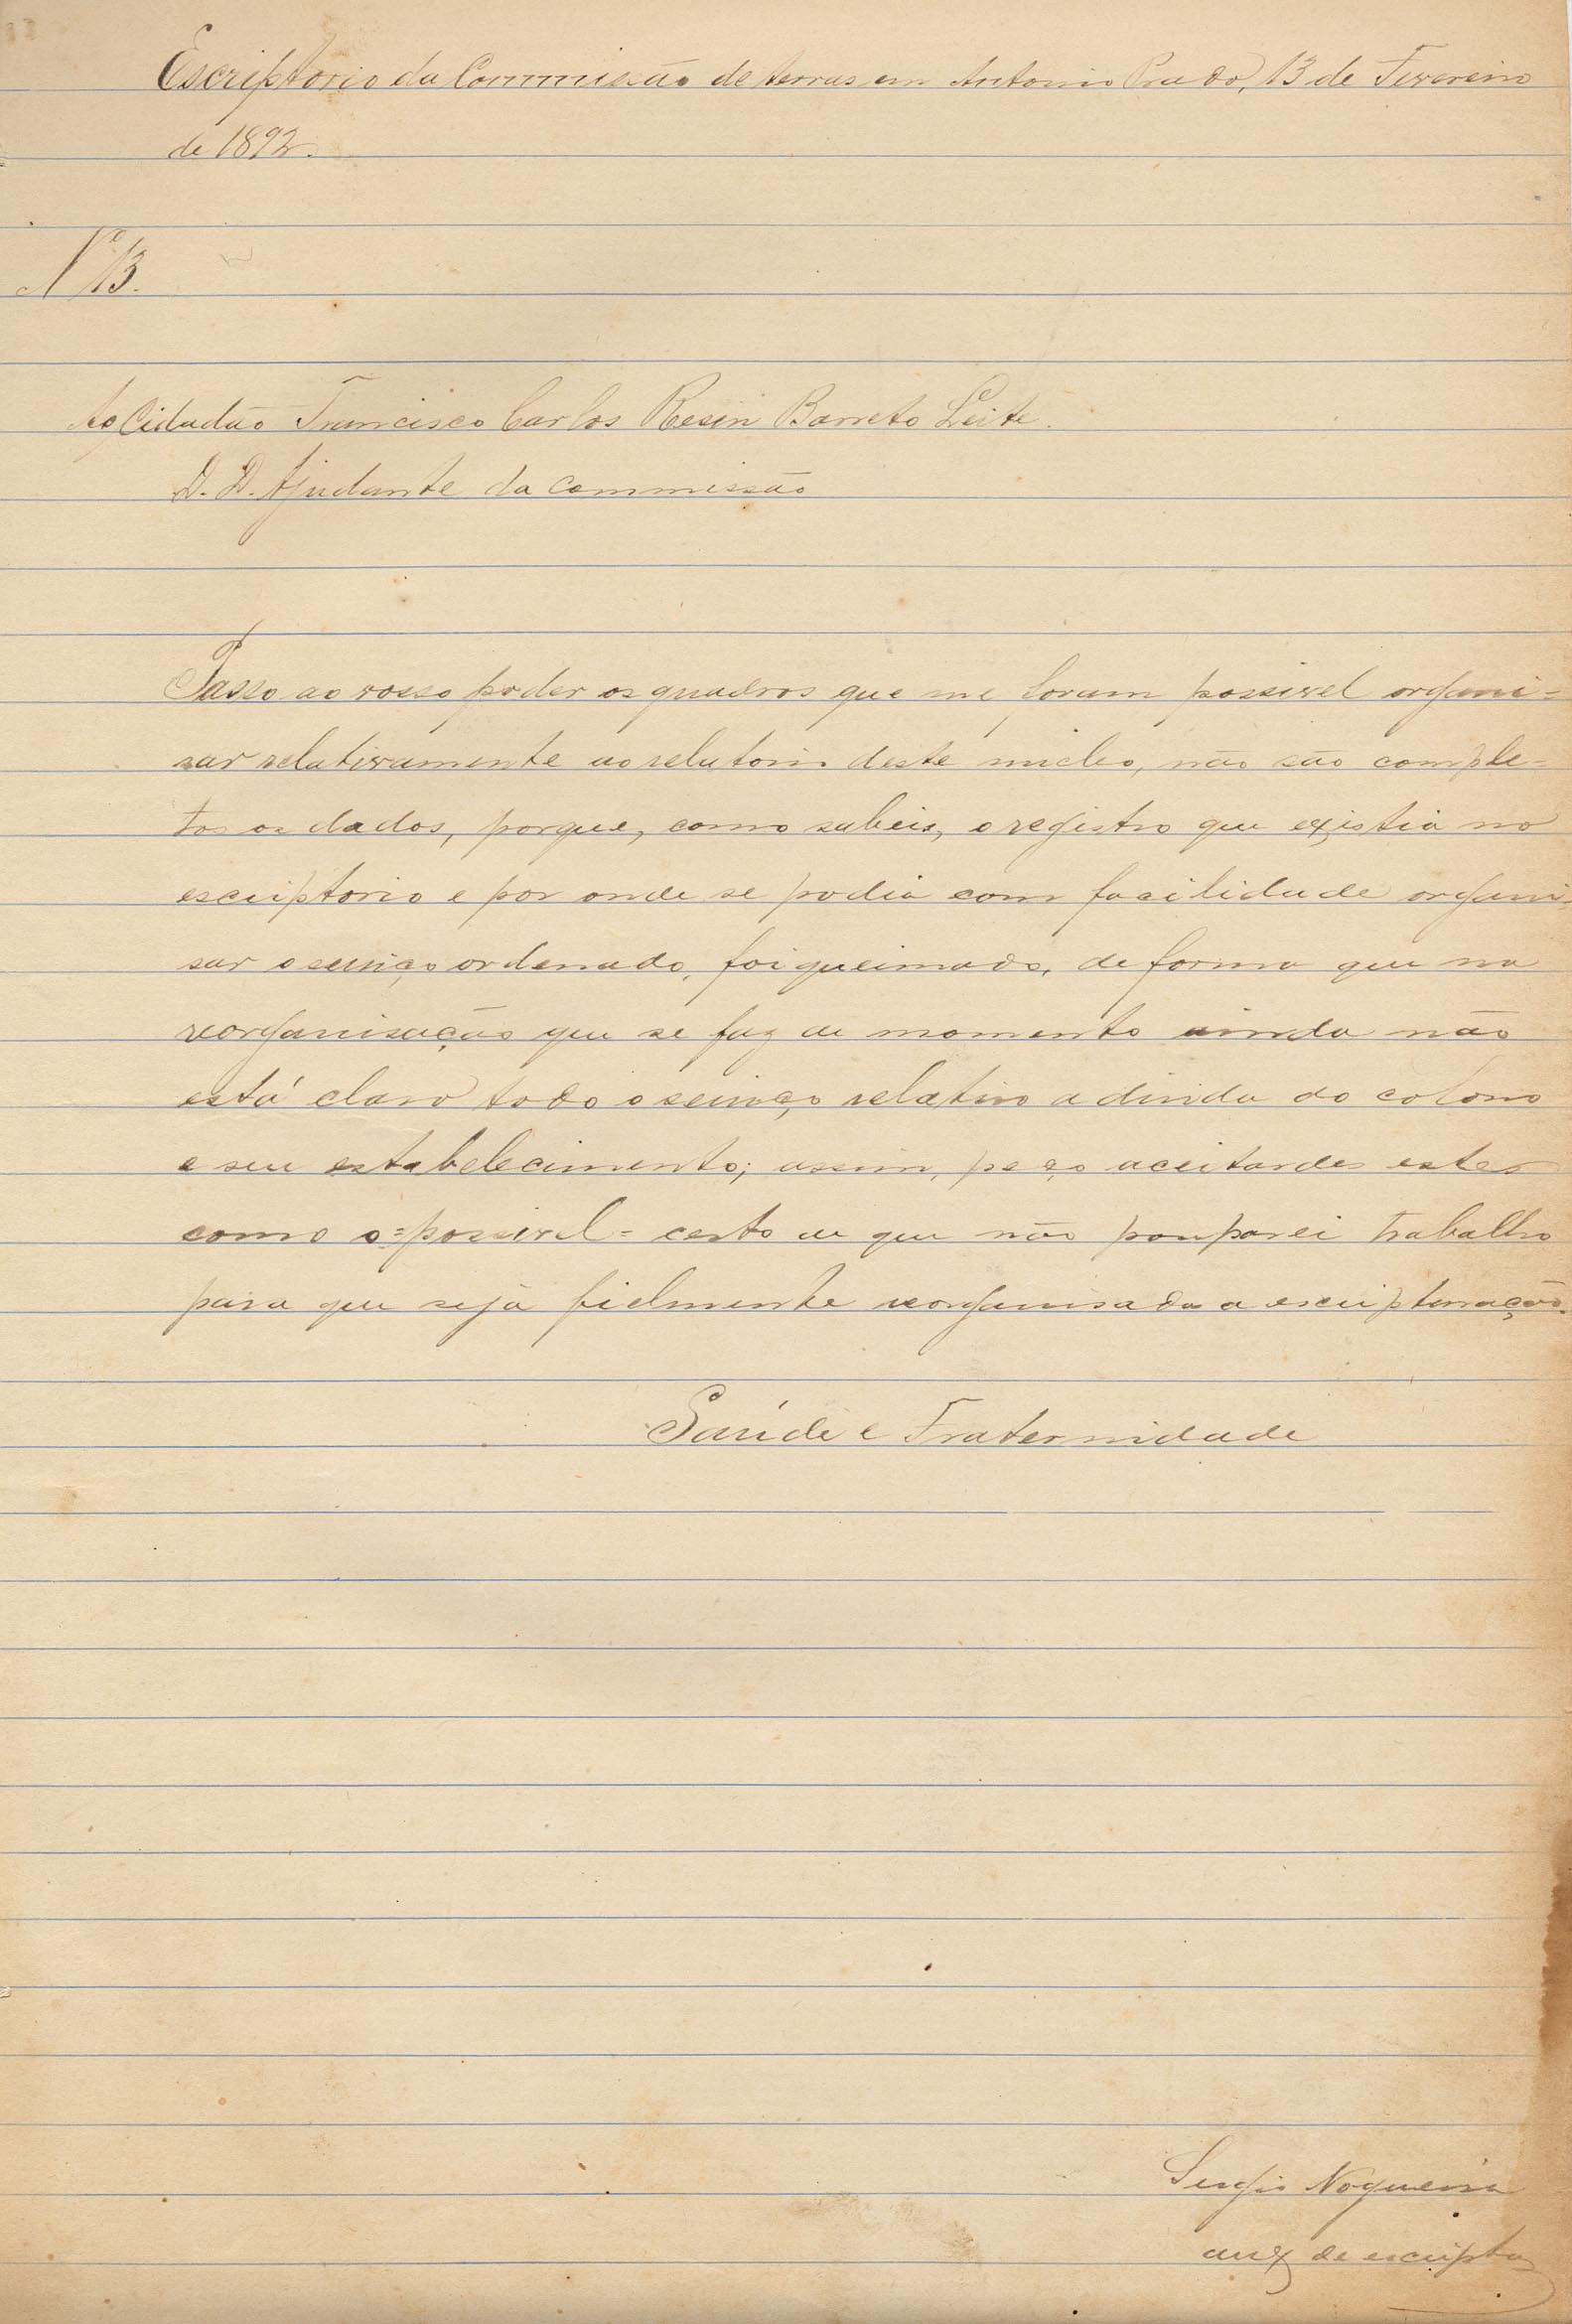 Escriptorio da Commissão de terras em Antonio Prado, 13 de Fevereiro
de 1892.
Nº 13.
Ao Cidadão Francisco Carlos Resin Barreto Leite.
D. D. Ajudante da Commissão
Passo ao vosso poder os quadros que me foram possivel organi=
sar relativamente ao relatorio deste nucleo, não são comple=
tos os dados, porque, como sabeis, o registro que existia no
escriptorio e por onde se podia com facilidade organi=
sar o serviço ordenado, foi queimado, de forma que na
reorganisação que se faz de momento ainda não
está claro todo o serviço relativo a divida do colono
e seu estabelecimento; assim, peço aceitardes estes
como o =possivel= certo de que não pouparei trabalho
para que seja fielmente reorganisada a escripturação.
Saúde e Fraternidade
Sergio Nogueira
aux de escripta